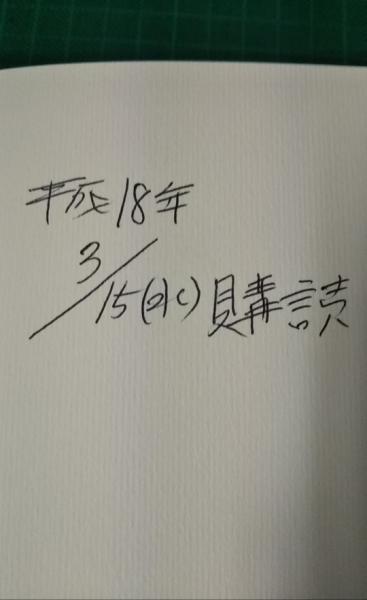 平成18年
3/15(水)購読